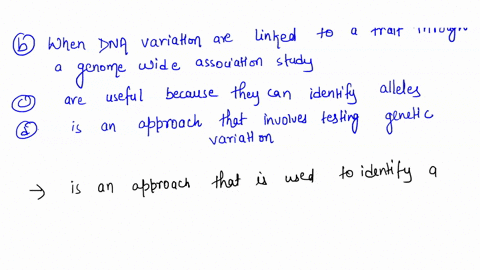 (b) When DNA variation are linked to a trait through
a genome wide association study
(c) are useful because they can identify alleles
(d) is an approach that involves testing genetic
variation
→ is an approach that is used to identify a